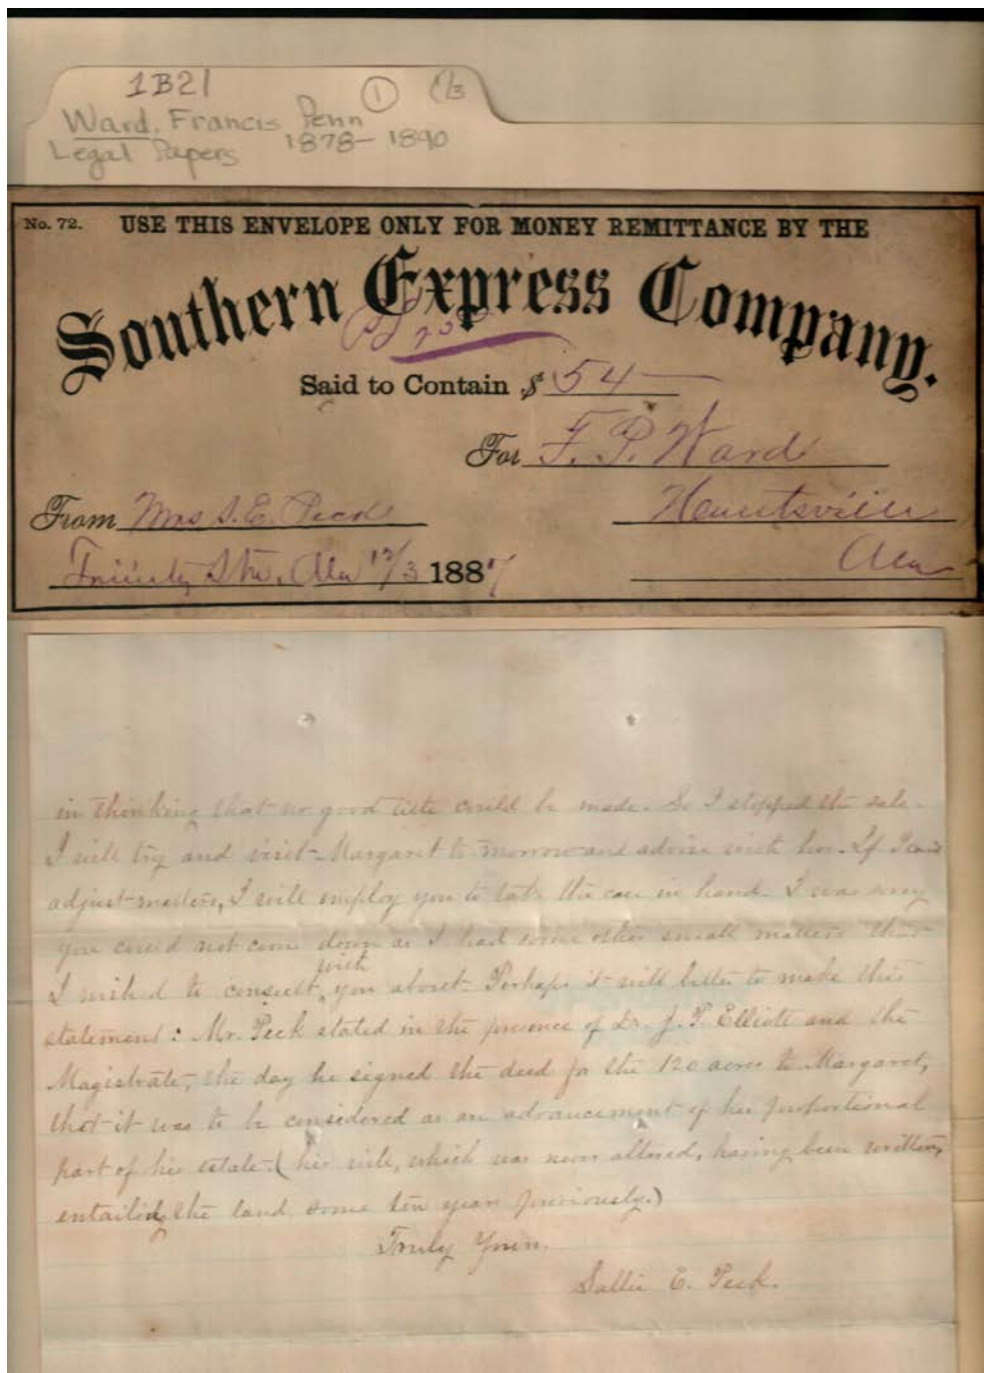 1B21 ①
Ward, Francis Penn
Legal Papers 1878-1890
No. 72. USE THIS ENVELOPE ONLY FOR MONEY REMITTANCE BY THE
Southern Express Company.
Said to Contain $ 54
For F. P. Ward
From Mrs S. E. Peck
Huntsville
Trinity Sta, Ala 12/3 1887
Ala
in thinking that no good title could be made. So I stopped the sale.
I will try and visit Margaret to-morrow and advise with her. If I can
adjust matters, I will employ you to take the case in hand. I was sorry
you could not come down as I had some other small matters that
with
I wished to consult you about. Perhaps it will better to make this
statement: Mr. Peck stated in the presence of Dr. J. P. Elliott and the
Magistrate, the day he signed the deed for the 120 acres to Margaret,
that it was to be considered as an advancement of her proportional
part of his estate. (his will, which was never altered, having been written,
entailing the land some ten years previously.)
Truly Yours.
Sallie E. Peck.